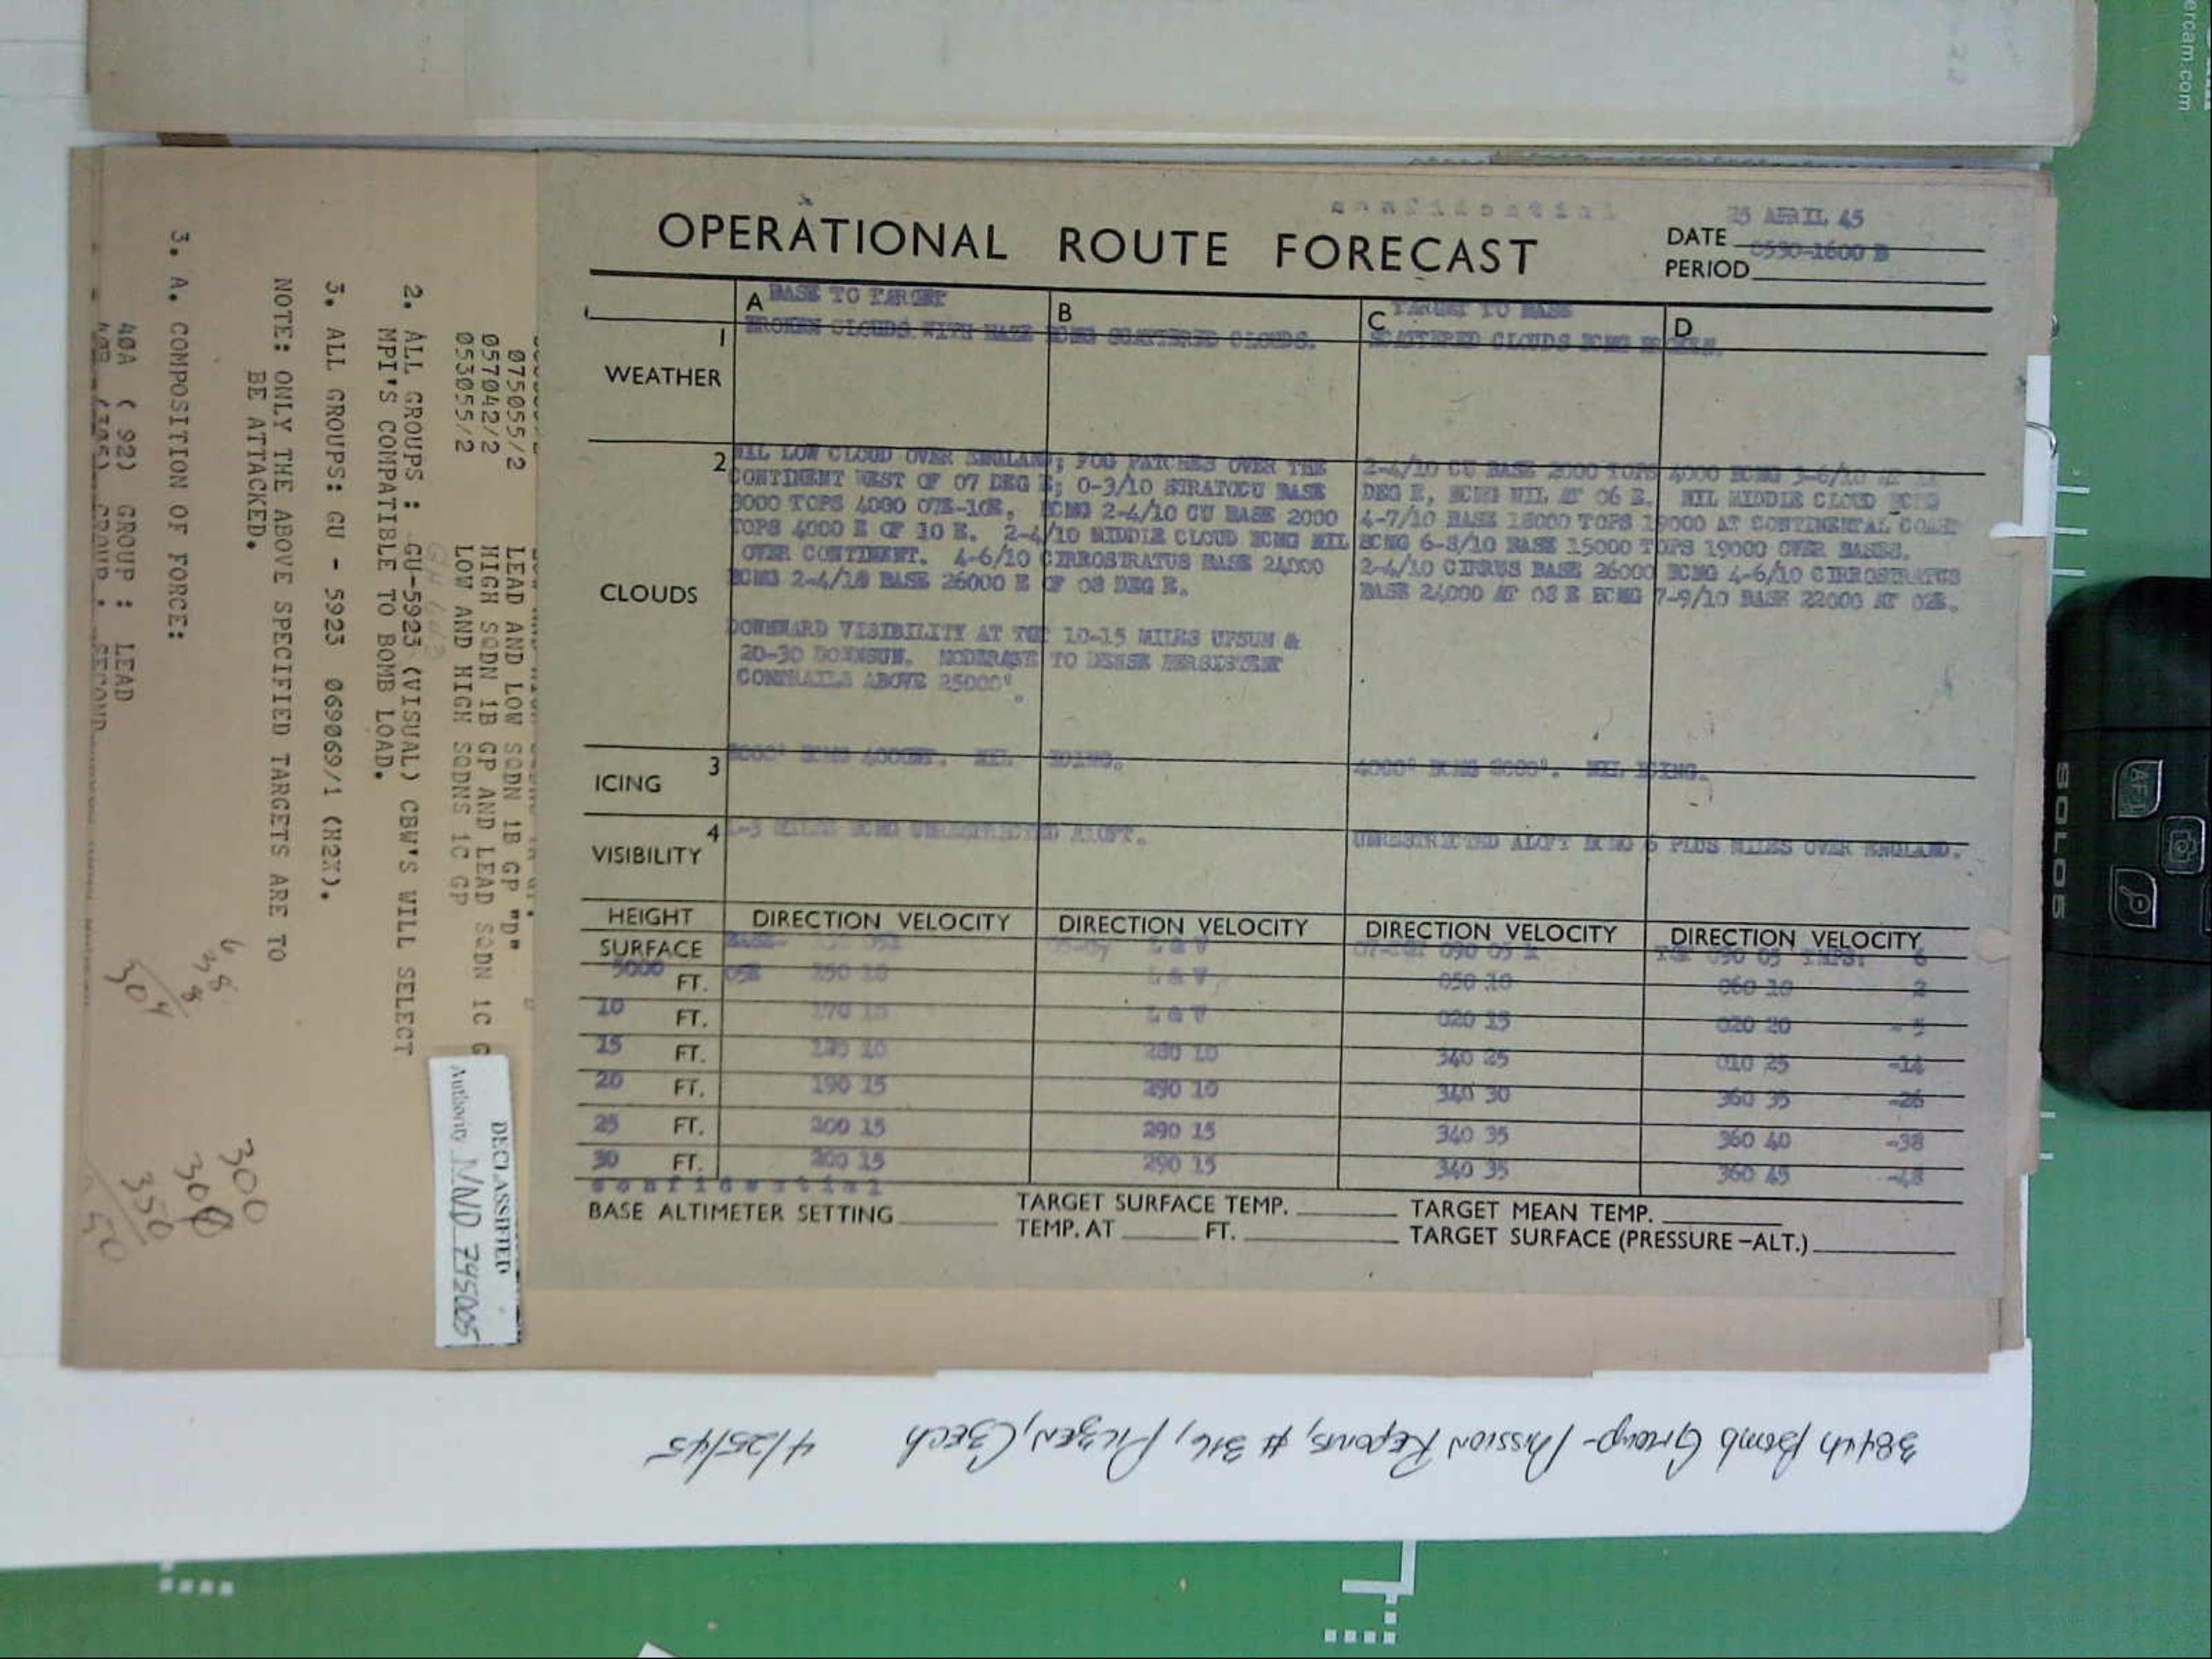 confidential
OPERATIONAL ROUTE FORECAST
25 APRIL 45
DATE
0530-1600 B
PERIOD
A BASE TO TARGET
B
C TARGET TO BASE
D
1
WEATHER
BROKEN CLOUDS WITH HAZE BCMG SCATTERED CLOUDS.
SCATTERED CLOUDS BCMG BROKEN.
2
CLOUDS
NIL LOW CLOUD OVER ENGLAND; FOG PATCHES OVER THE
CONTINENT WEST OF 07 DEG E; 0-3/10 STRATOCU BASE
3000 TOPS 4000 07E-10E, BCMG 2-4/10 CU BASE 2000
TOPS 4000 E OF 10 E. 2-4/10 MIDDLE CLOUD BCMG NIL
OVER CONTINENT. 4-6/10 CIRROSTRATUS BASE 24000
BCMG 2-4/10 BASE 26000 E OF 08 DEG E.
DOWNWARD VISIBILITY AT TGT 10-15 MILES UPSUN &
20-30 DOWNSUN. MODERATE TO DENSE PERSISTENT
CONTRAILS ABOVE 25000'.
2-4/10 CU BASE 2000 TOPS 4000 BCMG 3-6/10 AT
DEG E, BCMG NIL AT 06 E. NIL MIDDLE CLOUD BCMG
4-7/10 BASE 18000 TOPS 19000 AT CONTINENTAL COAST
BCMG 6-8/10 BASE 15000 TOPS 19000 OVER BASES.
2-4/10 CIRRUS BASE 26000 BCMG 4-6/10 CIRROSTRATUS
BASE 24000 AT 08 E BCMG 7-9/10 BASE 22000 AT 02E.
3
ICING
BCMG NIL ICING.
4000' BCMG 8000'. NIL ICING.
4
VISIBILITY
MILES BCMG UNRESTRICTED ALOFT.
UNRESTRICTED ALOFT BCMG 6 PLUS MILES OVER ENGLAND.
HEIGHT DIRECTION VELOCITY DIRECTION VELOCITY DIRECTION VELOCITY DIRECTION VELOCITY
SURFACE BASE- L & V 090 05 TGT 090 05 TMPS: 6
5000 FT. 05E 150 10 L & V 050 10 060 10 2
10 FT. 170 10 L & V 020 15 020 20 -5
15 FT. 10 280 10 340 25 010 25 -14
20 FT. 190 15 290 10 340 30 360 35 -26
25 FT. 200 15 290 15 340 35 360 40 -38
30 FT. 200 15 290 15 340 35 360 45 -48
confidential
BASE ALTIMETER SETTING
TARGET SURFACE TEMP.
TARGET MEAN TEMP.
TEMP. AT FT.
TARGET SURFACE (PRESSURE-ALT.)
075055/2 LEAD AND LOW SQDN 1B GP "D"
057042/2 HIGH SQDN 1B GP AND LEAD SQDN 1C G
053055/2 LOW AND HIGH SQDNS 1C GP
2. ALL GROUPS : GU-5923 (VISUAL) CBW'S WILL SELECT
MPI'S COMPATIBLE TO BOMB LOAD.
3. ALL GROUPS: GU - 5923 069069/1 (H2X).
NOTE: ONLY THE ABOVE SPECIFIED TARGETS ARE TO
BE ATTACKED.
3. A. COMPOSITION OF FORCE:
40A ( 92) GROUP : LEAD
40B (305) GROUP : SECOND
6
38
8
304
300
300
350
50
DECLASSIFIED
Authority NND 745005
384th Bomb Group - Mission Reports, # 316, Pilzen, Czech 4/25/45
ercam.com
AF
SOLO5